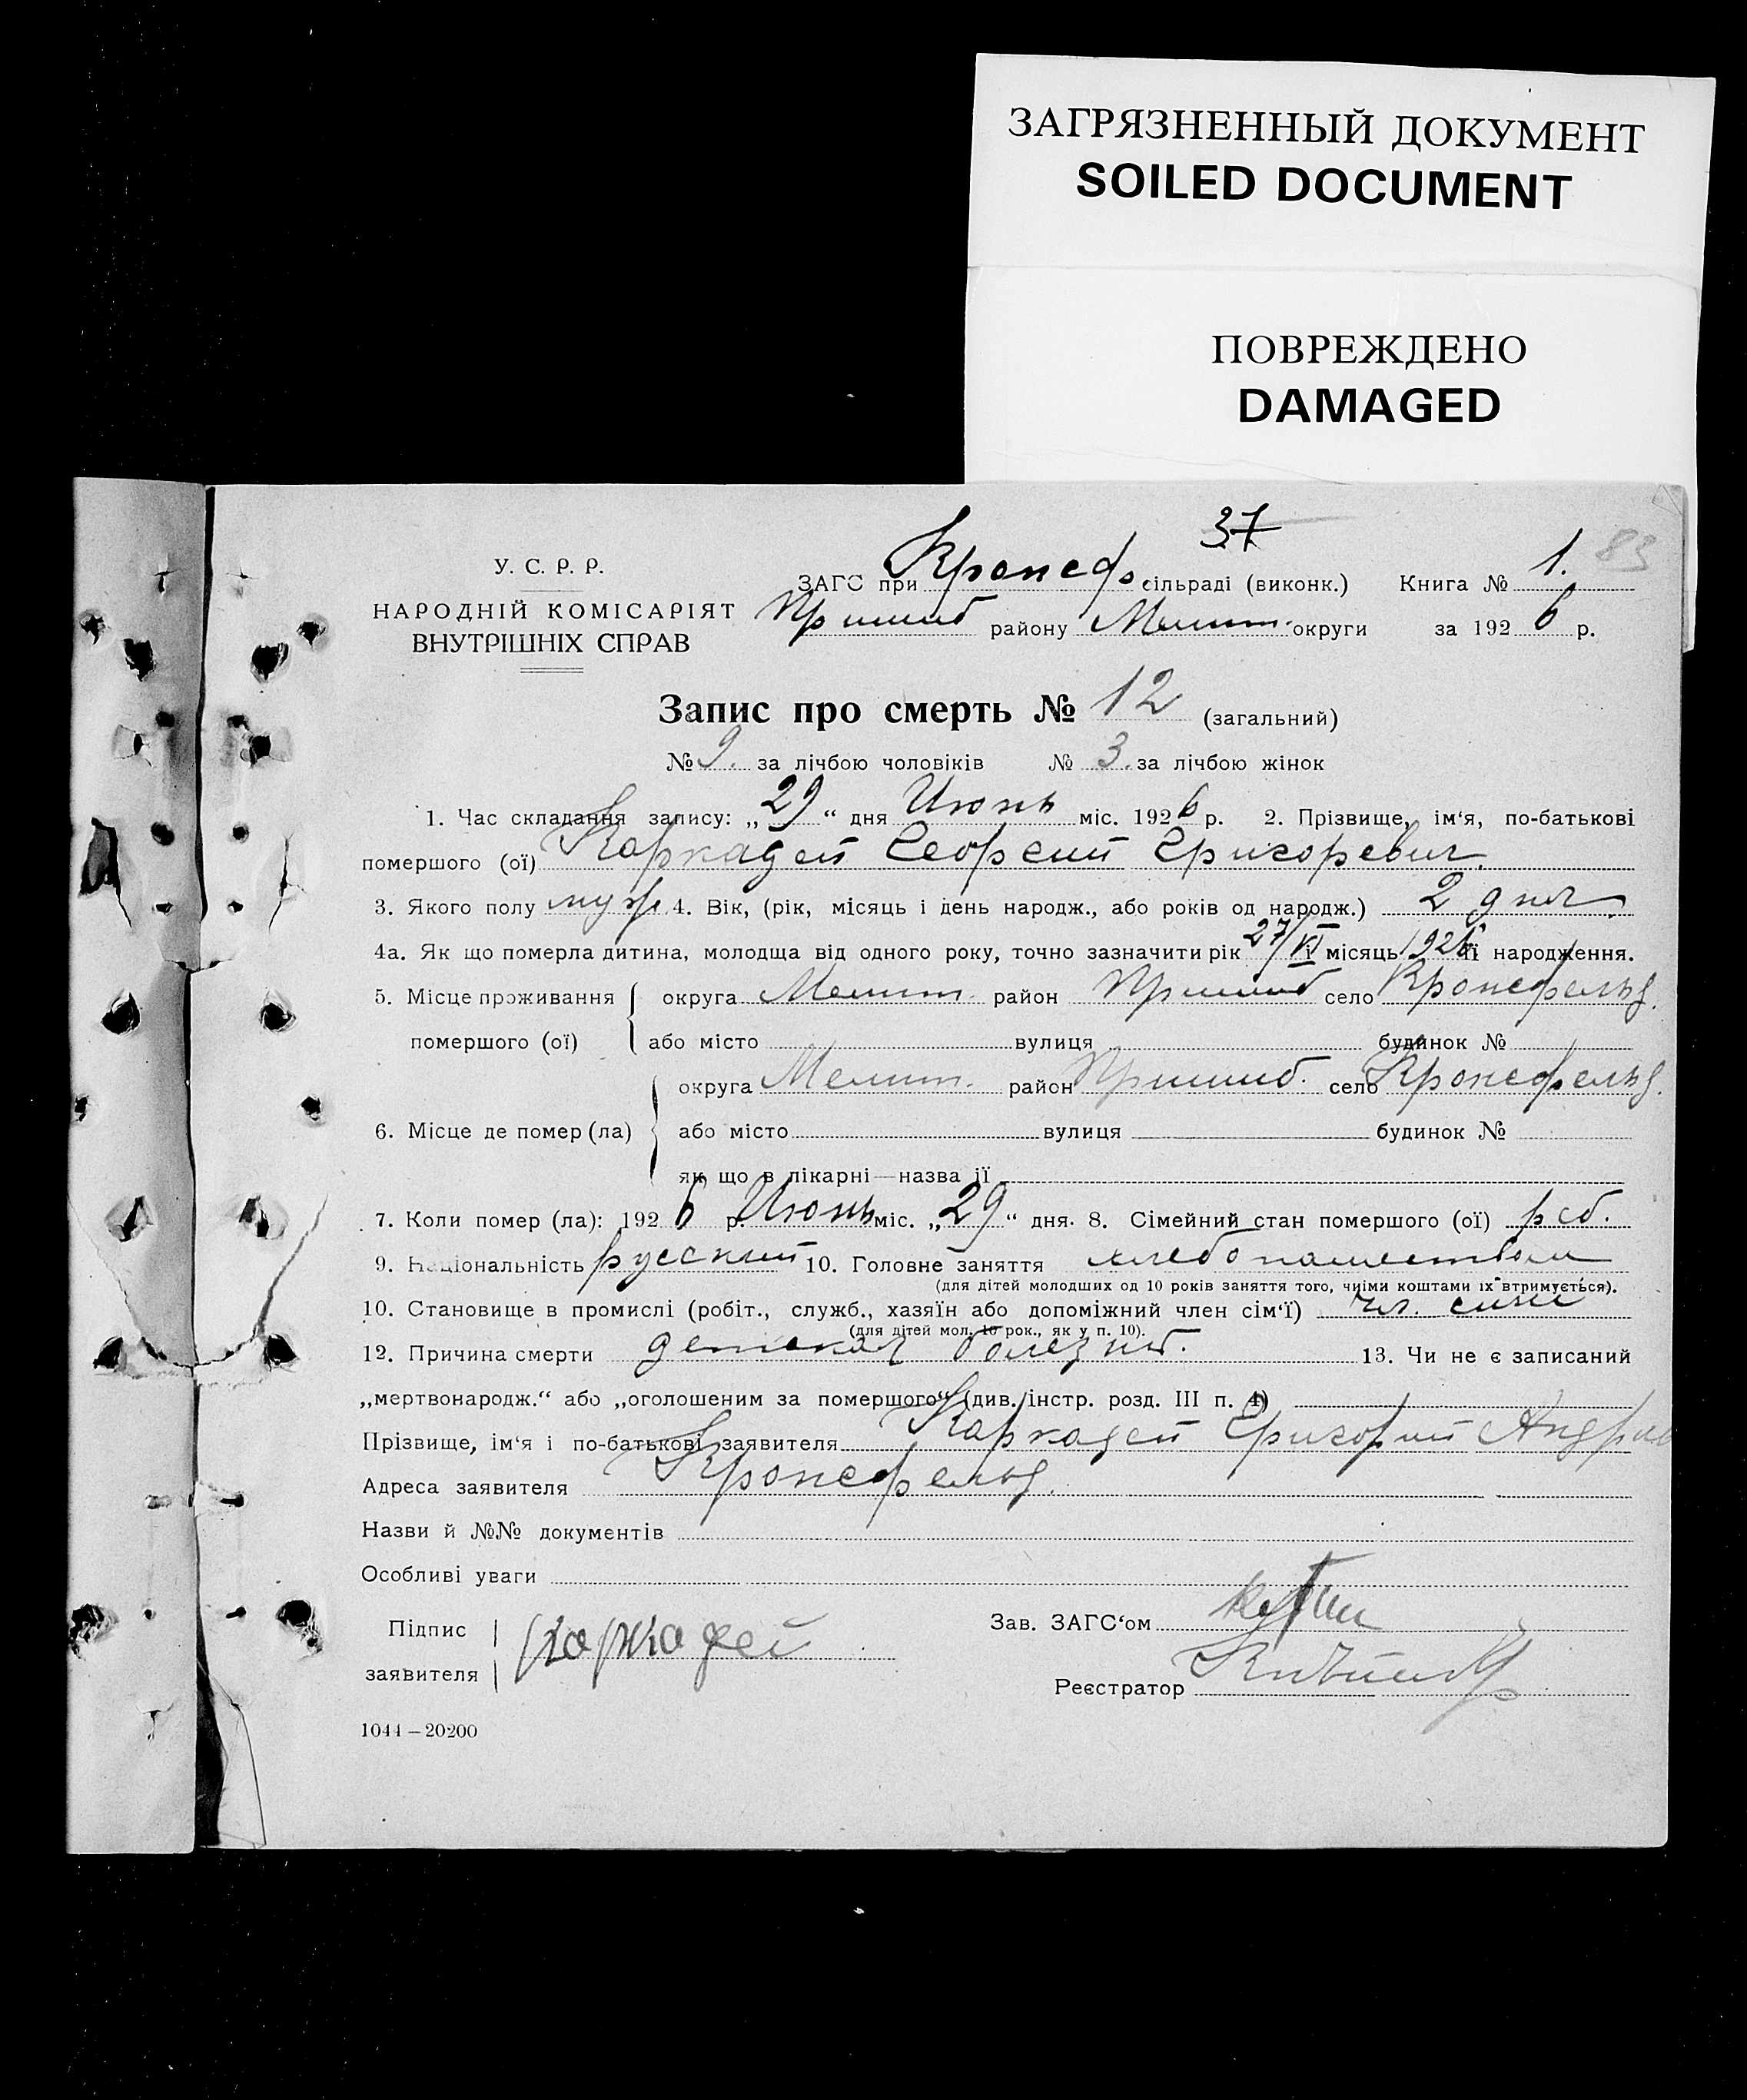 ЗАГРЯЗНЕННЫЙ ДОКУМЕНТ
SOILED DOCUMENT
ПОВРЕЖДЕНО
DAMAGED
37
83
У. С. Р. Р.
НАРОДНІЙ КОМІСАРІЯТ
ВНУТРІШНІХ СПРАВ
ЗАГС при Кронсф. сільраді (виконк.) Книга № 1.
Пришиб району Мелит. округи за 1926 р.
Запис про смерть № 12 (загальний)
№ 9. за лічбою чоловіків № 3. за лічбою жінок
1. Час складання запису: „29“ дня Июнь міс. 1926 р. 2. Прізвище, ім‘я, по-батькові
помершого (ої) Каркадей Георгий Григорьевич.
3. Якого полу муж. 4. Вік, (рік, місяць і день народж., або років од народж.) 2 дня.
4а. Як що померла дитина, молодща від одного року, точно зазначити рік 27/VI місяць 1926 її народження.
5. Місце проживання помершого (ої) округа Мелит. район Пришиб село Кронсфельд.
або місто вулиця будинок №
6. Місце де помер (ла) округа Мелит. район Пришиб. село Кронсфельд.
або місто вулиця будинок №
як що в лікарні—назва її
7. Коли помер (ла): 1926 р. Июнь міс. „29“ дня. 8. Сімейний стан помершого (ої) реб.
9. Національність русский 10. Головне заняття хлебопашеством
(для дітей молодших од 10 років заняття того, чиїми коштами їх втримується).
10. Становище в промислі (робіт., служб., хазяїн або допоміжний член сім‘ї) чл. семи
(для дітей мол. 10 рок., як у п. 10).
12. Причина смерти детская болезнь. 13. Чи не є записаний
„мертвонародж.“ або „оголошеним за помершого“ (див. інстр. розд. III п. 4)
Прізвище, ім‘я і по-батькові заявителя Каркадей Григорий Андрие
Адреса заявителя Кронсфельд.
Назви й №№ документів
Особливі уваги
Підпис заявителя Каркадей
Зав. ЗАГС‘ом
Реєстратор
1044—20200